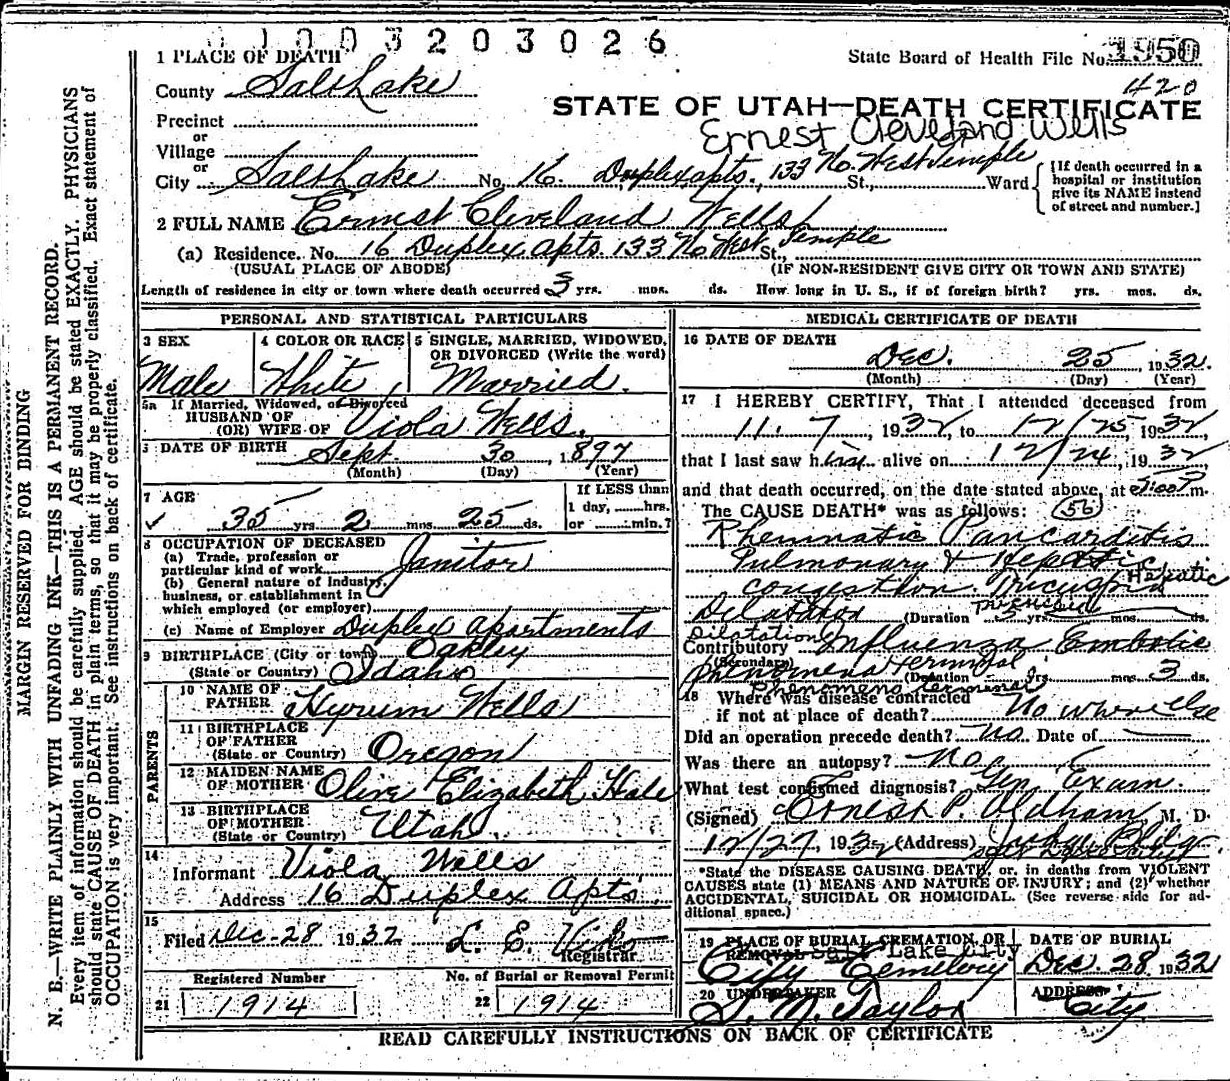 1 0 0 3 2 0 3 0 2 6
1 PLACE OF DEATH
State Board of Health File No. 1950
County Salt Lake
420
STATE OF UTAH—DEATH CERTIFICATE
Precinct
or
Ernest Cleveland Wells
Village
or
City Salt Lake No. 16. Duplex apts., 133 No. West Temple St., Ward
[If death occurred in a
hospital or institution
give its NAME instead
of street and number.]
2 FULL NAME Ernest Cleveland Wells
(a) Residence. No. 16 Duplex apts. 133 No West Temple St.,
(USUAL PLACE OF ABODE) (IF NON-RESIDENT GIVE CITY OR TOWN AND STATE)
Length of residence in city or town where death occurred 3 yrs. mos. ds. How long in U. S., if of foreign birth? yrs. mos. ds.
MARGIN RESERVED FOR BINDING
N. B.—WRITE PLAINLY WITH UNFADING INK—THIS IS A PERMANENT RECORD.
Every item of information should be carefully supplied. AGE should be stated EXACTLY. PHYSICIANS
should state CAUSE OF DEATH in plain terms, so that it may be properly classified. Exact statement of
OCCUPATION is very important. See instructions on back of certificate.
PERSONAL AND STATISTICAL PARTICULARS
3 SEX
Male
4 COLOR OR RACE
White
5 SINGLE, MARRIED, WIDOWED,
OR DIVORCED (Write the word)
Married.
5a If Married, Widowed, or Divorced
HUSBAND OF
(OR) WIFE OF Viola Wells.
6 DATE OF BIRTH Sept. 30, 1897
(Month) (Day) (Year)
7 AGE
35 yrs 2 mos. 25 ds.
If LESS than
1 day, hrs.
or min.?
8 OCCUPATION OF DECEASED
(a) Trade, profession or
particular kind of work Janitor
(b) General nature of Industry,
business, or establishment in
which employed (or employer)
(c) Name of Employer Duplex apartments
9 BIRTHPLACE (City or town) Oakley
(State or Country) Idaho
PARENTS
10 NAME OF
FATHER Hyrum Wells
11 BIRTHPLACE
OF FATHER
(State or Country) Oregon
12 MAIDEN NAME
OF MOTHER Olive Elizabeth Hale
13 BIRTHPLACE
OF MOTHER
(State or Country) Utah
14
Informant Viola Wells
Address 16 Duplex Apts.
15
Filed Dec-28 1932 L. E.
Registrar
Registered Number
21 1914
No. of Burial or Removal Permit
22 1914
MEDICAL CERTIFICATE OF DEATH
16 DATE OF DEATH
Dec. 25, 1932.
(Month) (Day) (Year)
17 I HEREBY CERTIFY, That I attended deceased from
11. 7, 1932, to 12/25, 1932
that I last saw him alive on 12/24, 1932
and that death occurred, on the date stated above, at 5:00 P. m.
The CAUSE DEATH* was as follows: (56)
Rheumatic Pancarditis
Pulmonary & Hepatic
Hepatic
congestion. Tricuspid
Dilatation (Duration yrs. mos. ds.
Dilatation
Contributory Influenza Embolic
(Secondary)
phenomena terminal (Duration yrs. mos. 3 ds.
phenomena terminal
18 Where was disease contracted
if not at place of death? No where else
Did an operation precede death? no Date of
Was there an autopsy? No
What test confirmed diagnosis? Gen Exam.
(Signed) Ernest P. Oldham, M. D.
12/27, 1932 (Address) Judge Bldg.
Salt Lake City
*State the DISEASE CAUSING DEATH, or, in deaths from VIOLENT
CAUSES state (1) MEANS AND NATURE OF INJURY; and (2) whether
ACCIDENTAL, SUICIDAL OR HOMICIDAL. (See reverse side for ad-
ditional space.)
19 PLACE OF BURIAL, CREMATION, OR
REMOVAL Salt Lake City
City Cemetery
DATE OF BURIAL
Dec. 28, 1932
20 UNDERTAKER
S. M. Taylor
ADDRESS
City
READ CAREFULLY INSTRUCTIONS ON BACK OF CERTIFICATE